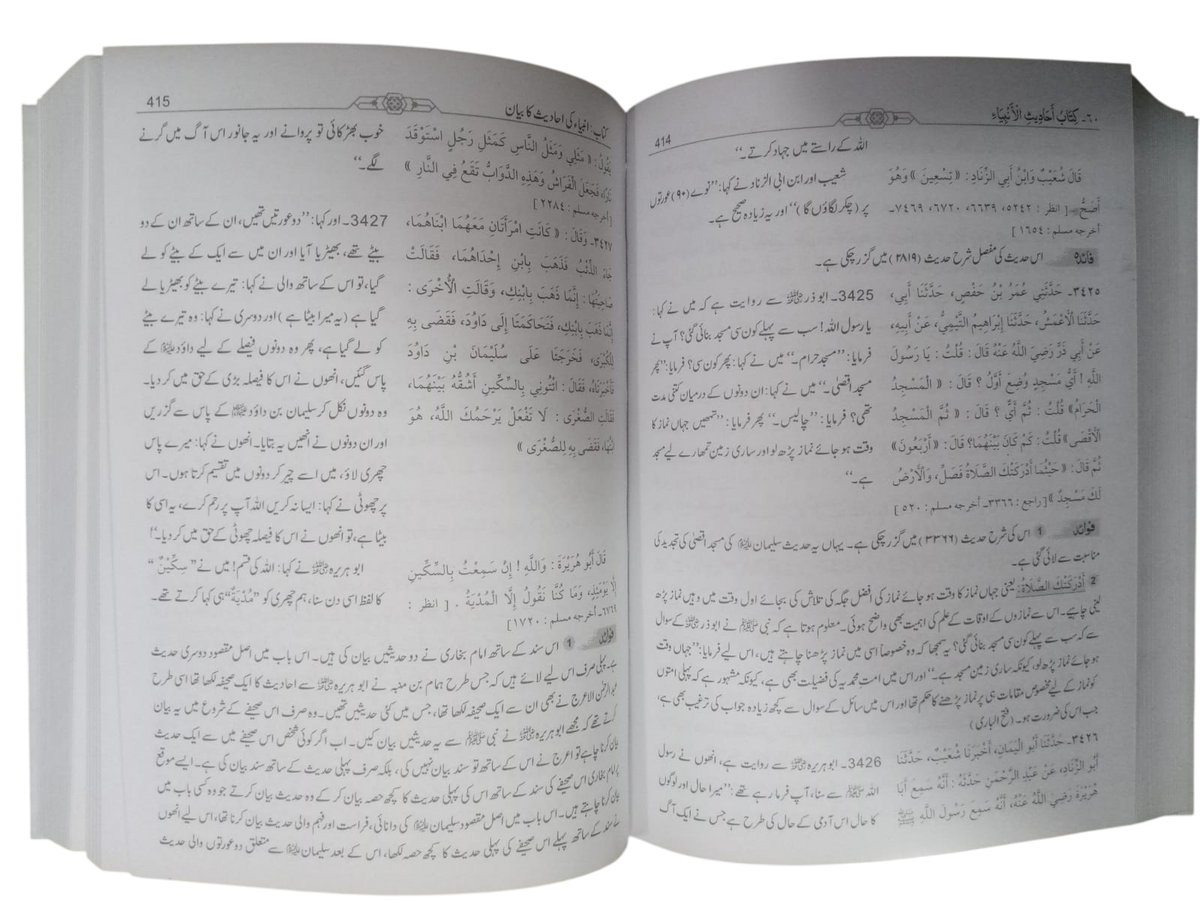 ٦٠۔ كِتَابُ أَحَادِيثِ الْأَنْبِيَاءِ
414
اللہ کے راستے میں جہاد کرتے۔“
قَالَ شُعَيْبٌ وَابْنُ أَبِي الزِّنَادِ : « تِسْعِينَ » وَهُوَ
أَصَحُّ۔ [ انظر : ٥٢٤٢، ٦٦٣٩، ٦٧٢٠، ٧٤٦٩۔
أخرجه مسلم : ١٦٥٤ ]
شعیب اور ابن ابی الزناد نے کہا: ”نوے (۹۰) عورتوں
پر (چکر لگاؤں گا)“ اور یہ زیادہ صحیح ہے۔
فائدہ اس حدیث کی مفصل شرح حدیث (۲۸۱۹) میں گزر چکی ہے۔
٣٤٢٥۔ حَدَّثَنِي عُمَرُ بْنُ حَفْصٍ، حَدَّثَنَا أَبِي،
حَدَّثَنَا الْأَعْمَشُ، حَدَّثَنَا إِبْرَاهِيمُ التَّيْمِيُّ، عَنْ أَبِيهِ،
عَنْ أَبِي ذَرٍّ رَضِيَ اللَّهُ عَنْهُ قَالَ : قُلْتُ : يَا رَسُولَ
اللَّهِ ! أَيُّ مَسْجِدٍ وُضِعَ أَوَّلُ ؟ قَالَ : « الْمَسْجِدُ
الْحَرَامُ» قُلْتُ : ثُمَّ أَيٌّ ؟ قَالَ : « ثُمَّ الْمَسْجِدُ
الْأَقْصَى» قُلْتُ : كَمْ كَانَ بَيْنَهُمَا؟ قَالَ : « أَرْبَعُونَ»
ثُمَّ قَالَ : « حَيْثُمَا أَدْرَكَتْكَ الصَّلَاةُ فَصَلِّ، وَالْأَرْضُ
لَكَ مَسْجِدٌ »[ راجع : ٣٣٦٦۔ أخرجه مسلم : ٥٢٠ ]
3425۔ ابو ذر رضی اللہ عنہ سے روایت ہے کہ میں نے کہا:
یا رسول اللہ! سب سے پہلے کون سی مسجد بنائی گئی؟ آپ نے
فرمایا: ”مسجد حرام۔“ میں نے کہا: پھر کون سی؟ فرمایا: ”پھر
مسجد اقصیٰ۔“ میں نے کہا: ان دونوں کے درمیان کتنی مدت
تھی؟ فرمایا: ”چالیس۔“ پھر فرمایا: ”تمھیں جہاں نماز کا
وقت ہو جائے نماز پڑھ لو اور ساری زمین تمھارے لیے مسجد
ہے۔“
فوائد 1 اس کی شرح حدیث (۳۳۶۶) میں گزر چکی ہے۔ یہاں یہ حدیث سلیمان علیہ السلام کی مسجد اقصیٰ کی تجدید کی
مناسبت سے لائی گئی ہے۔
2 أَدْرَكَتْكَ الصَّلَاةُ: یعنی جہاں نماز کا وقت ہو جائے نماز کی افضل جگہ کی تلاش کی بجائے اول وقت میں وہیں نماز پڑھ
لینی چاہیے۔ اس سے نمازوں کے اوقات کے علم کی اہمیت بھی واضح ہوئی۔ معلوم ہوتا ہے کہ نبی ﷺ نے ابو ذر رضی اللہ عنہ کے سوال
سے کہ سب سے پہلے کون سی مسجد بنائی گئی؟ یہ سمجھا کہ وہ خصوصاً اسی میں نماز پڑھنا چاہتے ہیں، اس لیے فرمایا: ”جہاں وقت
ہو جائے نماز پڑھ لو، کیونکہ ساری زمین مسجد ہے۔“ اور اس میں امت محمدیہ کی فضیلت بھی ہے، کیونکہ مشہور ہے کہ پہلی امتوں
کو نماز کے لیے مخصوص مقامات ہی پر نماز پڑھنے کا حکم تھا اور اس میں سائل کے سوال سے کچھ زیادہ جواب کی ترغیب بھی ہے،
جب اس کی ضرورت ہو۔ (فتح الباری)
٣٤٢٦۔ حَدَّثَنَا أَبُو الْيَمَانِ، أَخْبَرَنَا شُعَيْبٌ، حَدَّثَنَا
أَبُو الزِّنَادِ، عَنْ عَبْدِ الرَّحْمٰنِ حَدَّثَهُ : أَنَّهُ سَمِعَ أَبَا
هُرَيْرَةَ رَضِيَ اللَّهُ عَنْهُ، أَنَّهُ سَمِعَ رَسُولَ اللَّهِ ﷺ
3426۔ ابو ہریرہ رضی اللہ عنہ سے روایت ہے، انھوں نے رسول
اللہ ﷺ سے سنا، آپ فرما رہے تھے: ”میرا حال اور لوگوں
کا حال اس آدمی کے حال کی طرح ہے جس نے ایک آگ
کتاب: انبیاء کی احادیث کا بیان
415
يَقُولُ : « مَثَلِي وَمَثَلُ النَّاسِ كَمَثَلِ رَجُلٍ اسْتَوْقَدَ
نَارًا، فَجَعَلَ الْفَرَاشُ وَهٰذِهِ الدَّوَابُّ تَقَعُ فِي النَّارِ »
[ أخرجه مسلم : ٢٢٨٤ ]
خوب بھڑکائی تو پروانے اور یہ جانور اس آگ میں گرنے
لگے۔“
٣٤٢٧۔ وَقَالَ : « كَانَتِ امْرَأَتَانِ مَعَهُمَا ابْنَاهُمَا،
جَاءَ الذِّئْبُ فَذَهَبَ بِابْنِ إِحْدَاهُمَا، فَقَالَتْ
صَاحِبَتُهَا : إِنَّمَا ذَهَبَ بِابْنِكِ، وَقَالَتِ الْأُخْرَى :
إِنَّمَا ذَهَبَ بِابْنِكِ، فَتَحَاكَمَتَا إِلَى دَاوُدَ، فَقَضَى بِهِ
لِلْكُبْرَى، فَخَرَجَتَا عَلَى سُلَيْمَانَ بْنِ دَاوُدَ
فَأَخْبَرَتَاهُ، فَقَالَ : ائْتُونِي بِالسِّكِّينِ أَشُقُّهُ بَيْنَهُمَا،
فَقَالَتِ الصُّغْرَى : لَا تَفْعَلْ يَرْحَمُكَ اللَّهُ، هُوَ
ابْنُهَا، فَقَضَى بِهِ لِلصُّغْرَى »
3427۔ اور کہا: ”دو عورتیں تھیں، ان کے ساتھ ان کے دو
بیٹے تھے، بھیڑیا آیا اور ان میں سے ایک کے بیٹے کو لے
گیا، تو اس کے ساتھ والی نے کہا: تیرے بیٹے کو بھیڑیا لے
گیا ہے (یہ میرا بیٹا ہے) اور دوسری نے کہا: وہ تیرے بیٹے
کو لے گیا ہے، پھر وہ دونوں فیصلے کے لیے داؤد علیہ السلام کے
پاس گئیں، انھوں نے اس کا فیصلہ بڑی کے حق میں کر دیا۔
وہ دونوں نکل کر سلیمان بن داؤد علیہما السلام کے پاس سے گزریں
اور ان دونوں نے انھیں یہ بتایا۔ انھوں نے کہا: میرے پاس
چھری لاؤ، میں اسے چیر کر دونوں میں تقسیم کرتا ہوں۔ اس
پر چھوٹی نے کہا: ایسا نہ کریں اللہ آپ پر رحم کرے، یہ اسی کا
بیٹا ہے، تو انھوں نے اس کا فیصلہ چھوٹی کے حق میں کر دیا۔“!
قَالَ أَبُو هُرَيْرَةَ : وَاللَّهِ ! إِنْ سَمِعْتُ بِالسِّكِّينِ
إِلَّا يَوْمَئِذٍ، وَمَا كُنَّا نَقُولُ إِلَّا الْمُدْيَةُ . [ انظر :
٦٧٦٩۔ أخرجه مسلم : ١٧٢٠ ]
ابو ہریرہ رضی اللہ عنہ نے کہا: اللہ کی قسم! میں نے ”سِكِّينٌ“
کا لفظ اسی دن سنا، ہم چھری کو ”مُدْيَةٌ“ ہی کہا کرتے تھے۔
فوائد 1 اس سند کے ساتھ امام بخاری نے دو حدیثیں بیان کی ہیں۔ اس باب میں اصل مقصود دوسری حدیث
ہے۔ پہلی صرف اس لیے لائے ہیں کہ جس طرح ہمام بن منبہ نے ابو ہریرہ رضی اللہ عنہ سے احادیث کا ایک صحیفہ لکھا تھا اسی طرح
عبدالرحمٰن الاعرج نے بھی ان سے ایک صحیفہ لکھا تھا، جس میں کئی حدیثیں تھیں۔ وہ صرف اس صحیفے کے شروع میں یہ بیان
کرتے تھے کہ مجھے ابو ہریرہ رضی اللہ عنہ نے نبی ﷺ سے یہ حدیثیں بیان کیں۔ اب اگر کوئی شخص اس صحیفے میں سے ایک حدیث
بیان کرنا چاہے تو اعرج نے اس کے ساتھ تو سند بیان نہیں کی، بلکہ صرف پہلی حدیث کے ساتھ سند بیان کی ہے۔ ایسے موقع
پر امام بخاری اس صحیفے کی سند کے ساتھ اس کی پہلی حدیث کا کچھ حصہ بیان کر کے وہ حدیث بیان کرتے جو وہ کسی باب میں
بیان کرنا چاہتے ہیں۔ اس باب میں اصل مقصود سلیمان علیہ السلام کی دانائی، فراست اور فہم والی حدیث بیان کرنا تھا، اس لیے انھوں
نے سند کے ساتھ پہلے اس صحیفے کی پہلی حدیث کا کچھ حصہ لکھا، اس کے بعد سلیمان علیہ السلام سے متعلق دو عورتوں والی حدیث